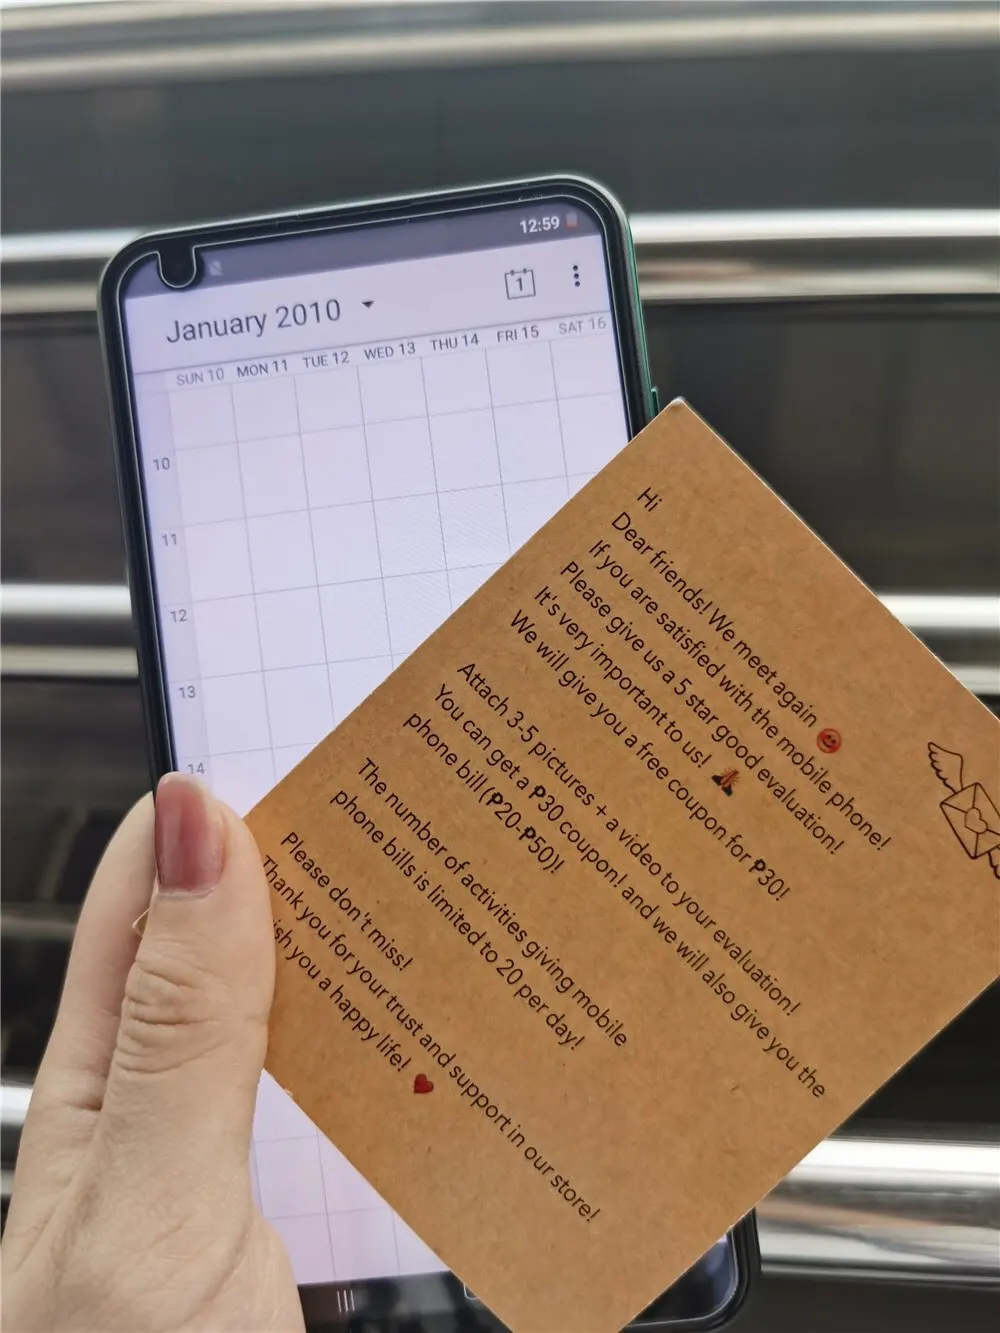 12:59
January 2010
1
SUN 10 MON 11 TUE 12 WED 13 THU 14 FRI 15 SAT 16
10
11
12
13
14
Hi
Dear friends! We meet again
If you are satisfied with the mobile phone!
Please give us a 5 star good evaluation!
It's very important to us!
We will give you a free coupon for ₱30!
Attach 3-5 pictures + a video to your evaluation!
You can get a ₱30 coupon! and we will also give you the
phone bill (₱20-₱50)!
The number of activities giving mobile
phone bills is limited to 20 per day!
Please don't miss!
Thank you for your trust and support in our store!
ish you a happy life!